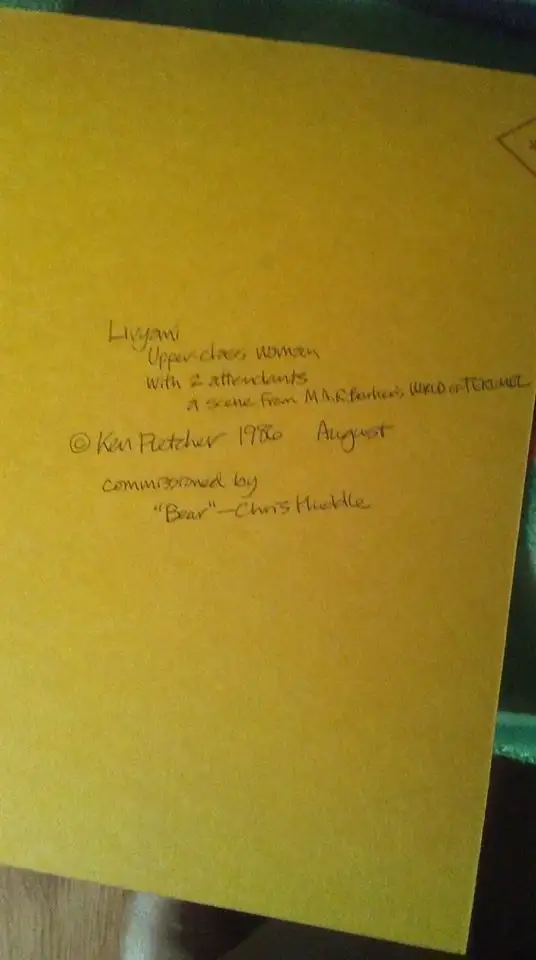 Livyani
Upper-class woman
with 2 attendants
a scene from M.A.R. Barker's WORLD OF TEKUMEL
© Ken Fletcher 1986 August
commissioned by
"Bear" — Chris Huddle